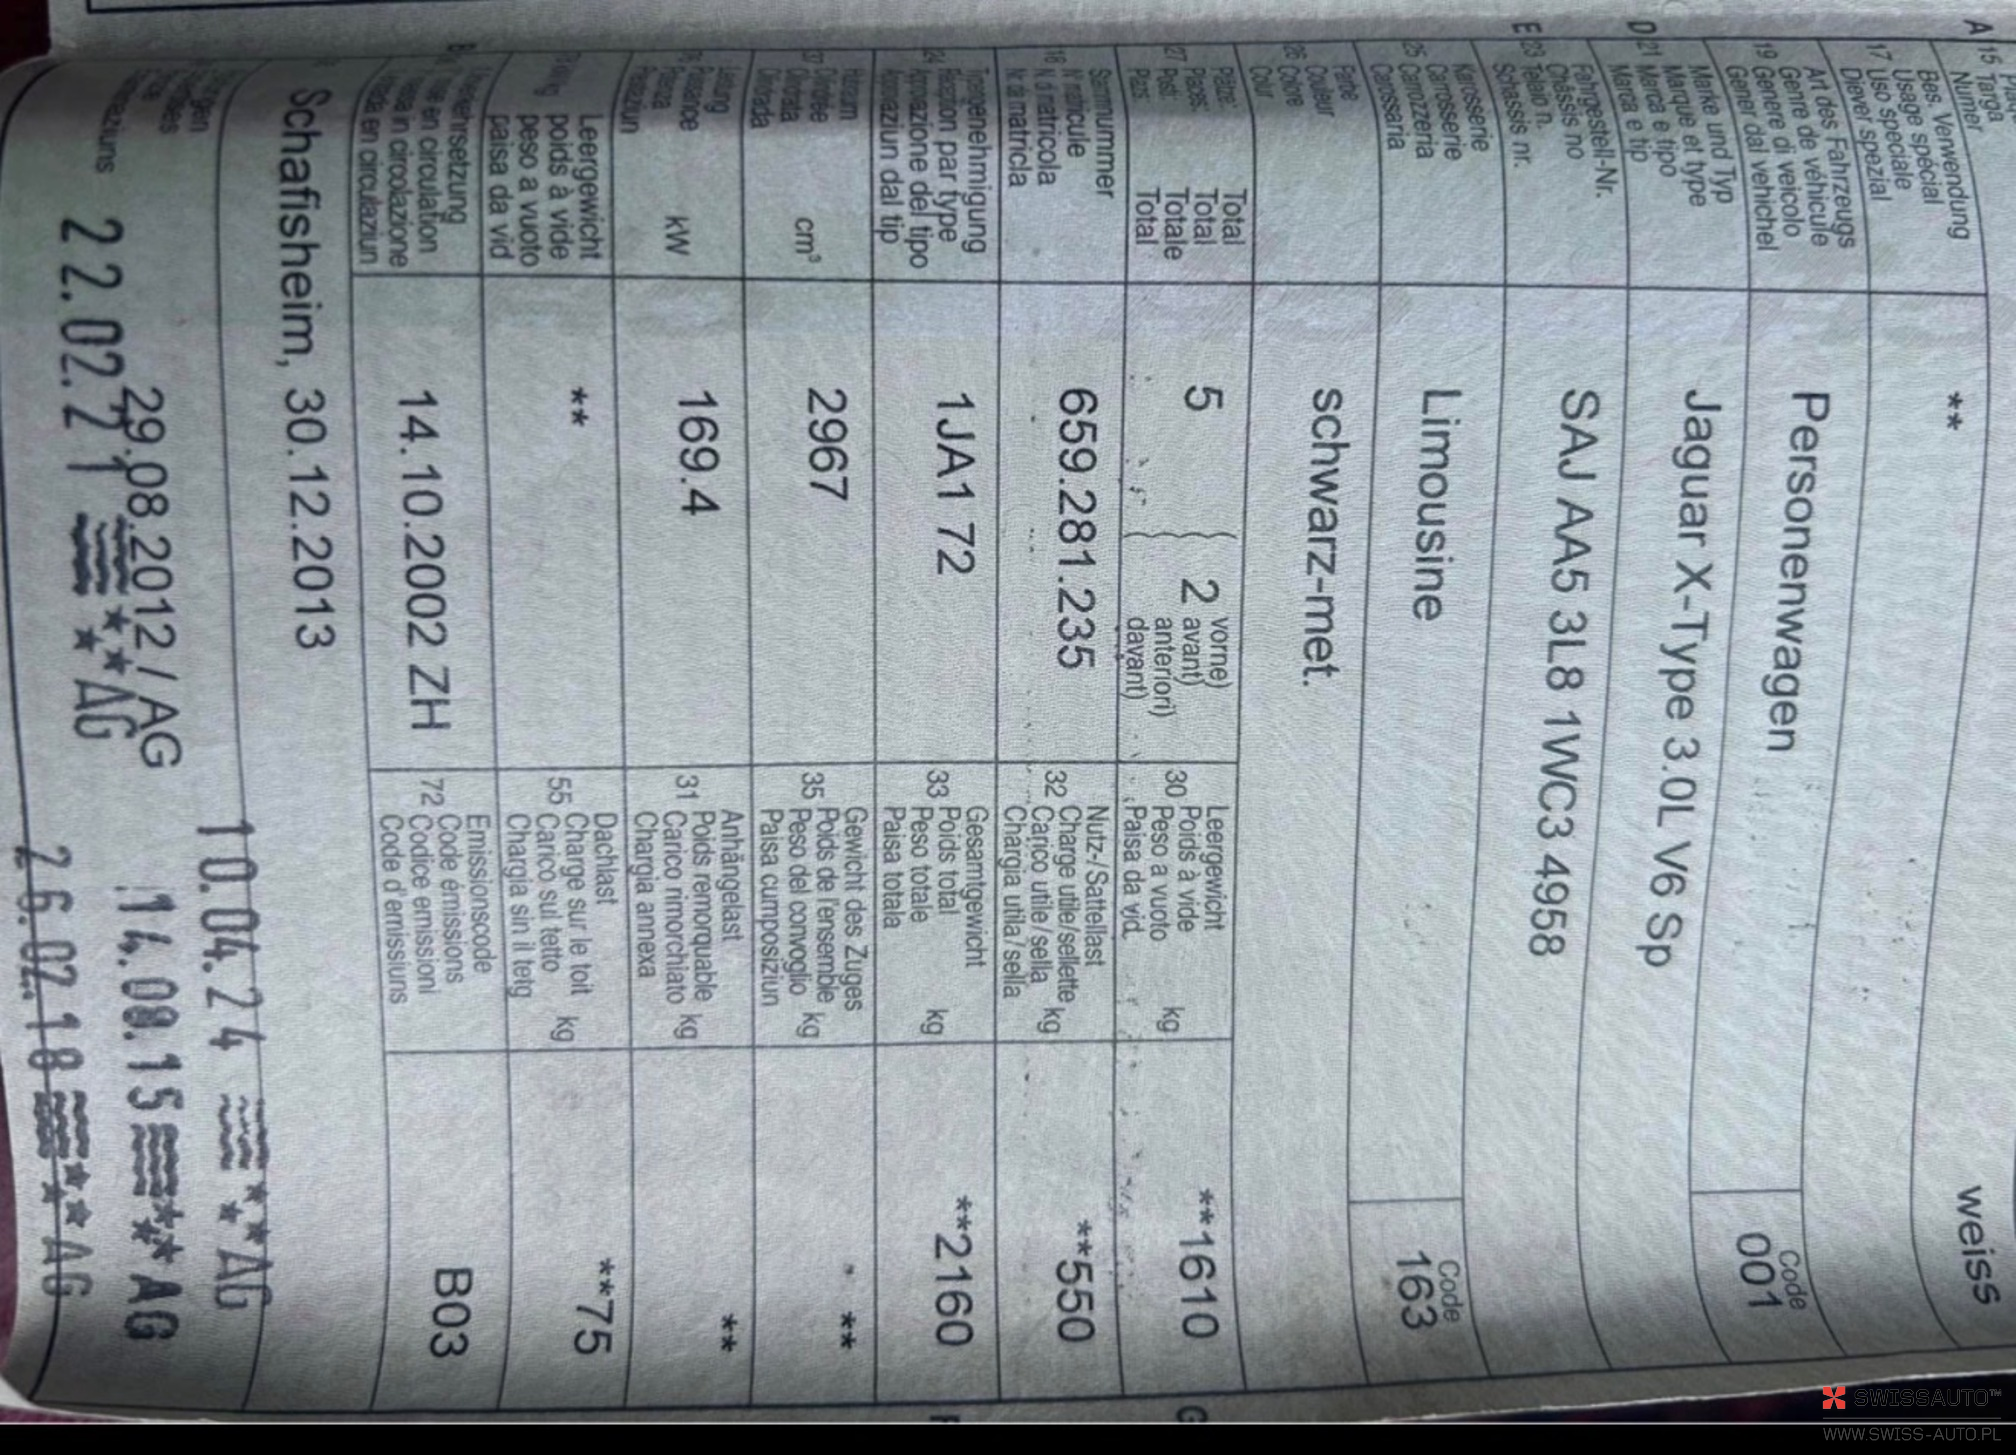 A 15 Targa
Numer
weiss
Bes. Verwendung
Usage spécial
17 Uso speciale
Diever spezial
**
Art des Fahrzeugs
Genre de véhicule
19 Genere di veicolo
Gener dal vehichel
Personenwagen
Code
001
Marke und Typ
Marque et type
D 21 Marca e tipo
Marca e tip
Jaguar X-Type 3.0L V6 Sp
Fahrgestell-Nr.
Châssis no
E 23 Telaio n.
Schassis nr.
SAJ AA5 3L8 1WC3 4958
Karosserie
Carrosserie
25 Carrozzeria
Carossaria
Limousine
Code
163
Farbe
Couleur
26 Colore
Colur
schwarz-met.
Plätze: Total
Places: Total
27 Posti: Totale
Plazs: Total
5
2
vorne)
avant)
anteriori)
davant)
Leergewicht
Poids à vide
30 Peso a vuoto kg
Paisa da vid
**1610
G
Stammnummer
N° matricule
18 N. di matricola
Nr. da matricla
659.281.235
Nutz-/Sattellast
Charge utile/sellette
32 Carico utile/sella kg
Chargia utila/sella
**550
Typengenehmigung
Réception par type
24 Approvazione del tipo
Approvaziun dal tip
1JA1 72
Gesamtgewicht
Poids total
33 Peso totale kg
Paisa totala
**2160
F
Hubraum
Cylindrée
37 Cilindrata cm³
Cilindrada
2967
Gewicht des Zuges
Poids de l'ensemble
35 Peso del convoglio kg
Paisa cumposiziun
**
Leistung
Puissance
Potenza kW
Prestaziun
169.4
Anhängelast
Poids remorquable
31 Carico rimorchiato kg
Chargia annexa
**
Leergewicht
poids à vide
peso a vuoto
paisa da vid
**
Dachlast
Charge sur le toit
55 Carico sul tetto kg
Chargia sin il tetg
**75
Inverkehrsetzung
mise en circulation
messa in circolazione
entrada en circulaziun
14.10.2002 ZH
Emissionscode
Code émissions
72 Codice emissioni
Code d'emissiuns
B03
Schafisheim, 30.12.2013
10.04.24 ** AG
29.08.2012 / AG
14.08.15 ** AG
22.02.21 ** AG
26.02.18 ** AG
SWISSAUTO™
WWW.SWISS-AUTO.PL